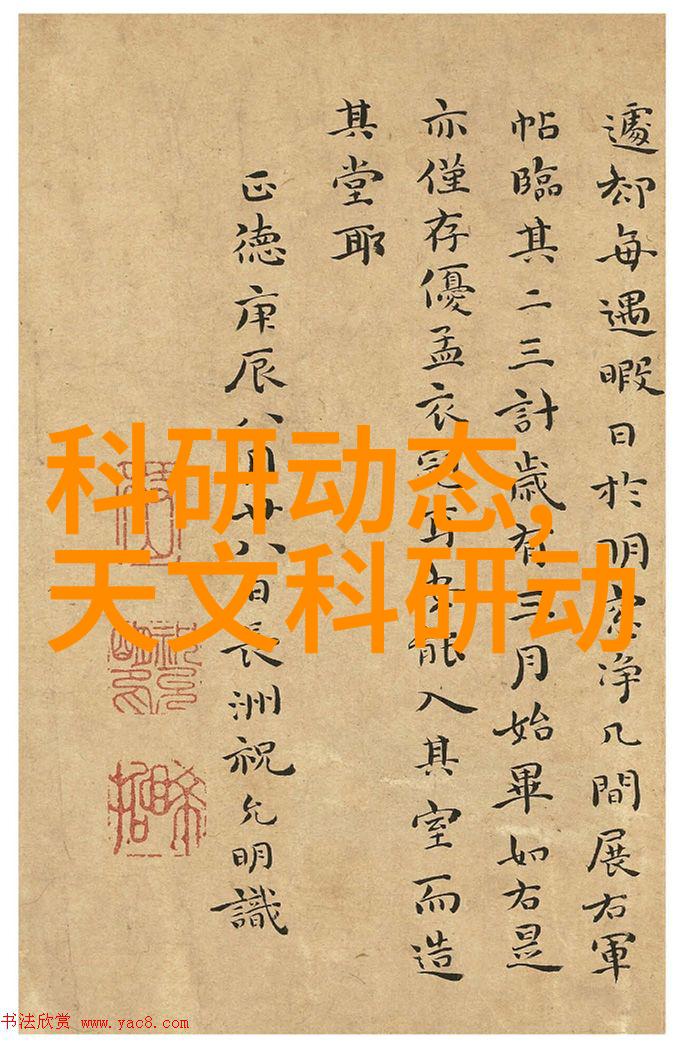 遽却每遇暇日於明窓净几間展右軍
帖臨其二三計歲有三月始畢如右是
亦僅存優孟衣冠耳安能入其室而造
其堂耶
正德庚辰八月廿八日長洲祝允明識
科研动态,
天文科研动
书法欣赏 www.yac8.com